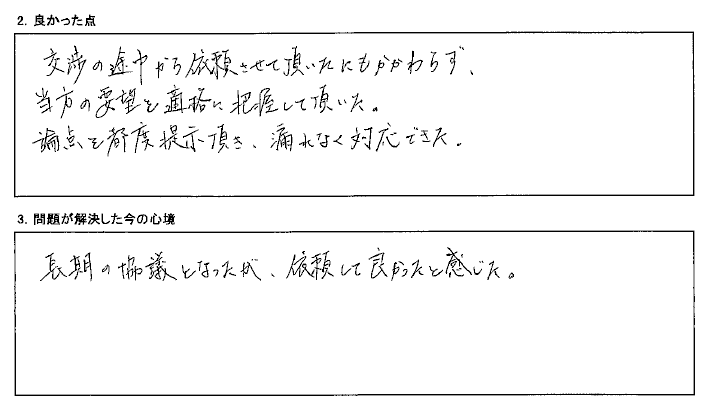 2. 良かった点
交渉の途中から依頼させて頂いたにもかかわらず、
当方の要望を適格に把握して頂いた。
論点を都度提示頂き、漏れなく対応できた。
3. 問題が解決した今の心境
長期の協議となったが、依頼して良かったと感じた。